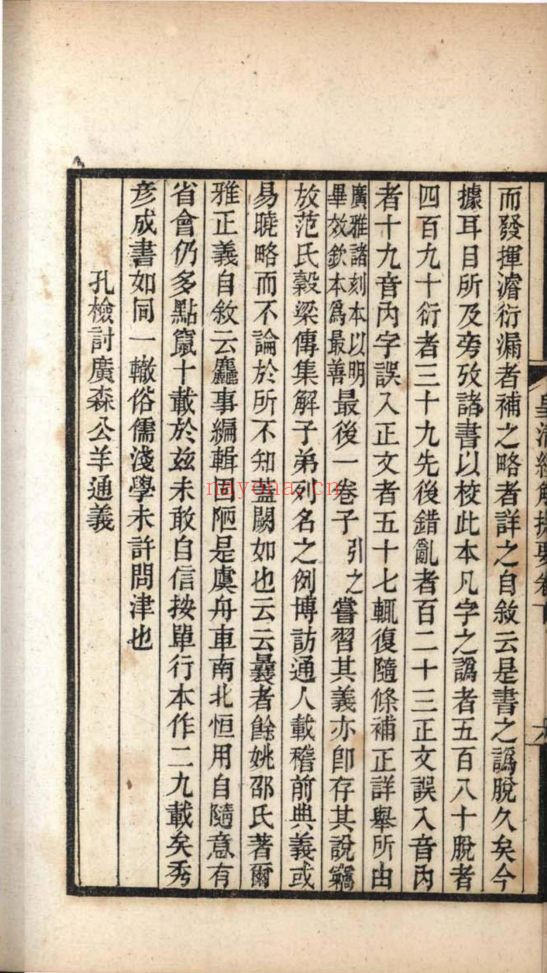 而發揮濬衍漏者補之略者詳之自敘云是書之譌脫久矣今
據耳目所及旁攷諸書以校此本凡字之譌者五百八十脫者
四百九十衍者三十九先後錯亂者百二十三正文誤入音內
者十九音內字誤入正文者五十七輒復隨條補正詳舉所由
廣雅諸刻本以明畢效欽本爲最善最後一卷子引之嘗習其義亦卽存其說竊
放范氏穀梁傳集解子弟列名之例博訪通人載稽前典義或
易曉略而不論於所不知蓋闕如也云云曩者餘姚邵氏著爾
雅正義自敘云麤事編輯固陋是虞舟車南北恒用自隨意有
省會仍多點竄十載於茲未敢自信按單行本作二九載矣秀
彥成書如同一轍俗儒淺學未許問津也
孔檢討廣森公羊通義
nayona.cn